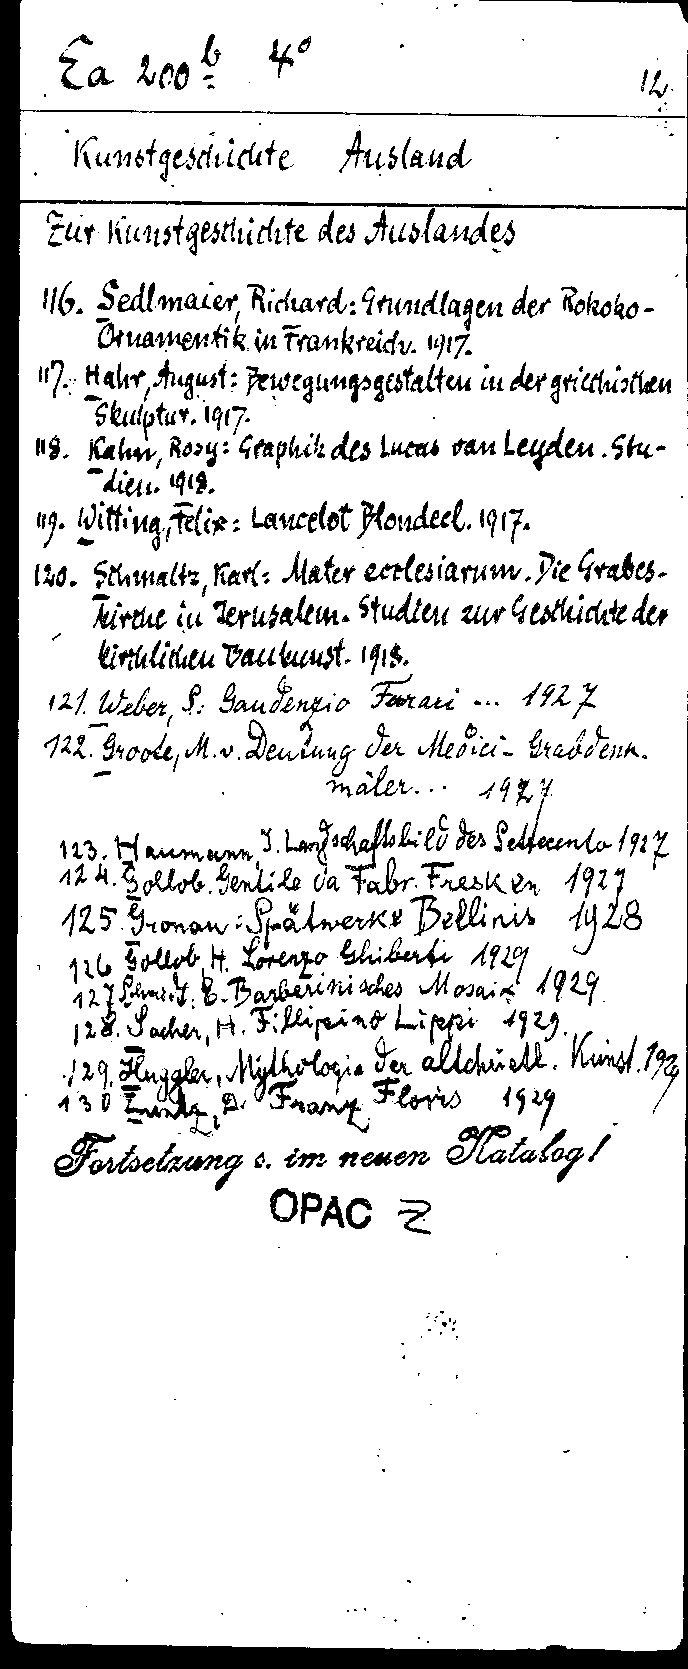 Ea 200 b 4°
12
Kunstgeschichte Ausland
Zur Kunstgeschichte des Auslandes
116. Sedlmaier, Richard: Grundlagen der Rokoko-
Ornamentik in Frankreich. 1917.
117. Hahr, August: Bewegungsgestalten in der griechischen
Skulptur. 1917.
118. Kahn, Rosy: Graphik des Lucas van Leyden. Stu-
dien. 1918.
119. Witting, Felix: Lancelot Blondeel. 1917.
120. Schmaltz, Karl: Mater ecclesiarum. Die Grabes-
kirche in Jerusalem. Studien zur Geschichte der
kirchlichen Baukunst. 1918.
121. Weber, S: Gaudenzio Ferrari ... 1927
122. Groote, M. v. Deutung der Medici-Grabdenk.
mäler... 1927
123. Haumann, I. Landschaftsbild des Settecento 1927
124. Gollob. Gentile da Fabr. Fresken 1927
125 Gronau: Spätwerke Bellinis 1928
126 Gollob, H. Lorenzo Ghiberti 1929
127 Schmidt, E. Barberinisches Mosaik 1929
128. Sacher, H. Fillipino Lippi 1929.
129. Huggler, Mythologie der altchristl. Kunst. 1929
130 Zuntz, D. Franz Floris 1929
Fortsetzung s. im neuen Katalog!
OPAC Z